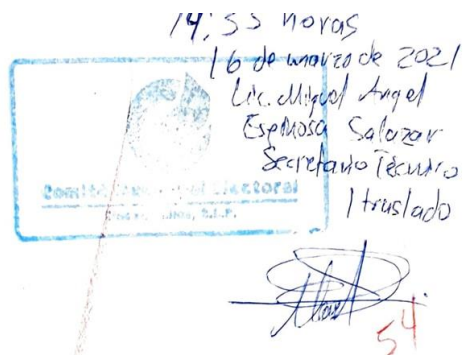 14:55 horas
16 de marzo de 2021
Lic. Miguel Angel
Espinosa Salazar
Secretario Técnico
1 traslado
Electoral
S.L.P.
54